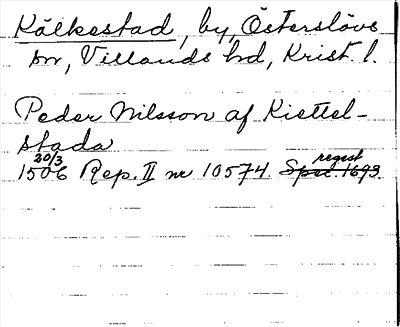 Kälkestad, by, Österslövs
sn, Villands hd, Krist. l.
Peder Nilsson af Kiettel-
stada
20/3 regist
1506 Rep. II nr 10574. Spec. 1693.